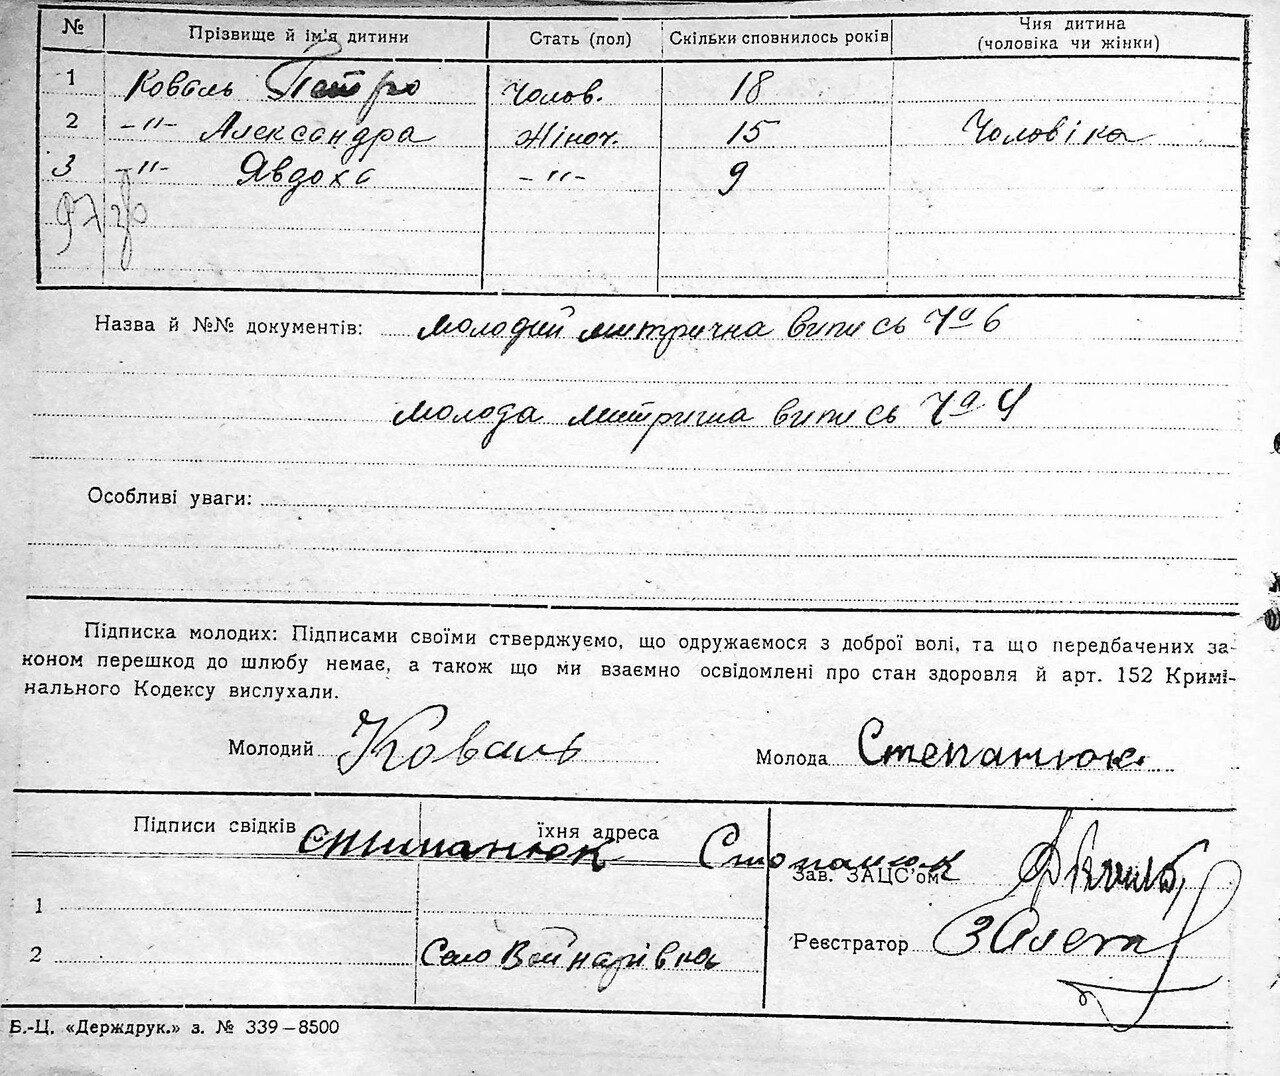 № Прізвище й ім'я дитини Стать (пол) Скільки сповнилось років Чия дитина (чоловіка чи жінки)
1 Коваль Петро Чолов. 18
2 –"– Александра Жіноч. 15 Чоловіка
3 –"– Явдоха –"– 9
Назва й №№ документів: молодий митрична випись
молода митрична випись
Особливі уваги:
Підписка молодих: Підписами своїми стверджуємо, що одружаємося з доброї волі, та що передбачених за-
коном перешкод до шлюбу немає, а також що ми взаємно освідомлені про стан здоровля й арт. 152 Кримі-
нального Кодексу вислухали.
Молодий Коваль Молода Степанюк
Підписи свідків їхня адреса
Степанюк
Зав. ЗАЦС'ом
1
Реєстратор
2 Село Войнарівка
Б.-Ц. «Держдрук.» з. № 339–8500